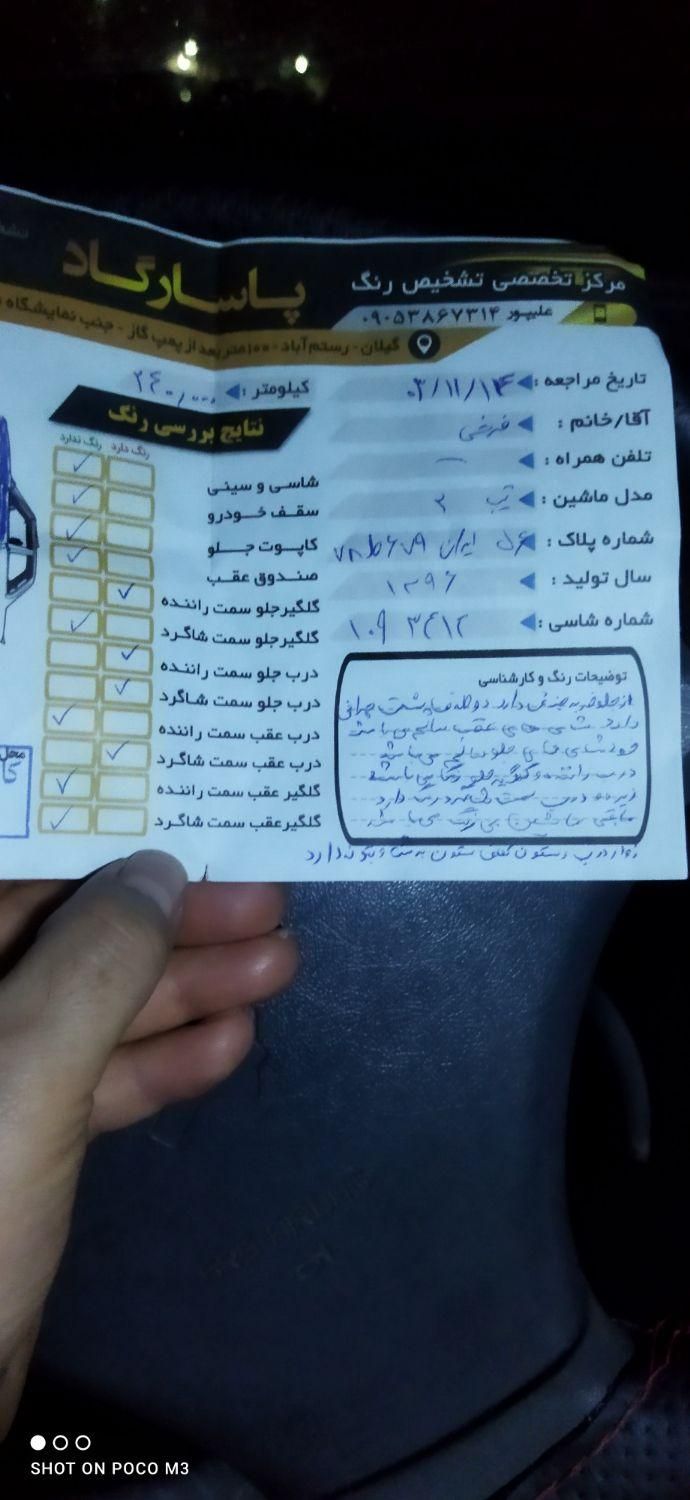 مرکز تخصصی تشخیص رنگ
پاسارگاد
علیپور ۰۹۰۵۳۸۶۷۳۱۴
گیلان - رستم‌آباد - ۱۰۰متر بعد از پمپ گاز - جنب نمایشگاه
تاریخ مراجعه : ۰۳/۱۱/۱۴
آقا/خانم :
تلفن همراه : —
مدل ماشین : تیپ ۲
شماره پلاک : ایران
سال تولید : ۱۳۹۶
شماره شاسی : ۱۰۹ ۳۴۱۲
توضیحات رنگ و کارشناسی
از جلو ضربه فنی دارد دو طرف پشت
دارد شاسی های عقب سالم می باشد
شاسی های جلو سالم می باشد
درب راننده و گلگیر جلو رنگ می باشد
درب سمت شاگرد رنگ دارد
مابقی ماشین بی رنگ می باشد
کیلومتر : ۲۴۰,۰۰۰
نتایج بررسی رنگ
رنگ دارد رنگ ندارد
شاسی و سینی ✓
سقف خودرو ✓
کاپوت جلو ✓
صندوق عقب ✓
گلگیر جلو سمت راننده ✓
گلگیر جلو سمت شاگرد ✓
درب جلو سمت راننده ✓
درب جلو سمت شاگرد ✓
درب عقب سمت راننده ✓
درب عقب سمت شاگرد ✓
گلگیر عقب سمت راننده ✓
گلگیر عقب سمت شاگرد ✓
محل
SHOT ON POCO M3